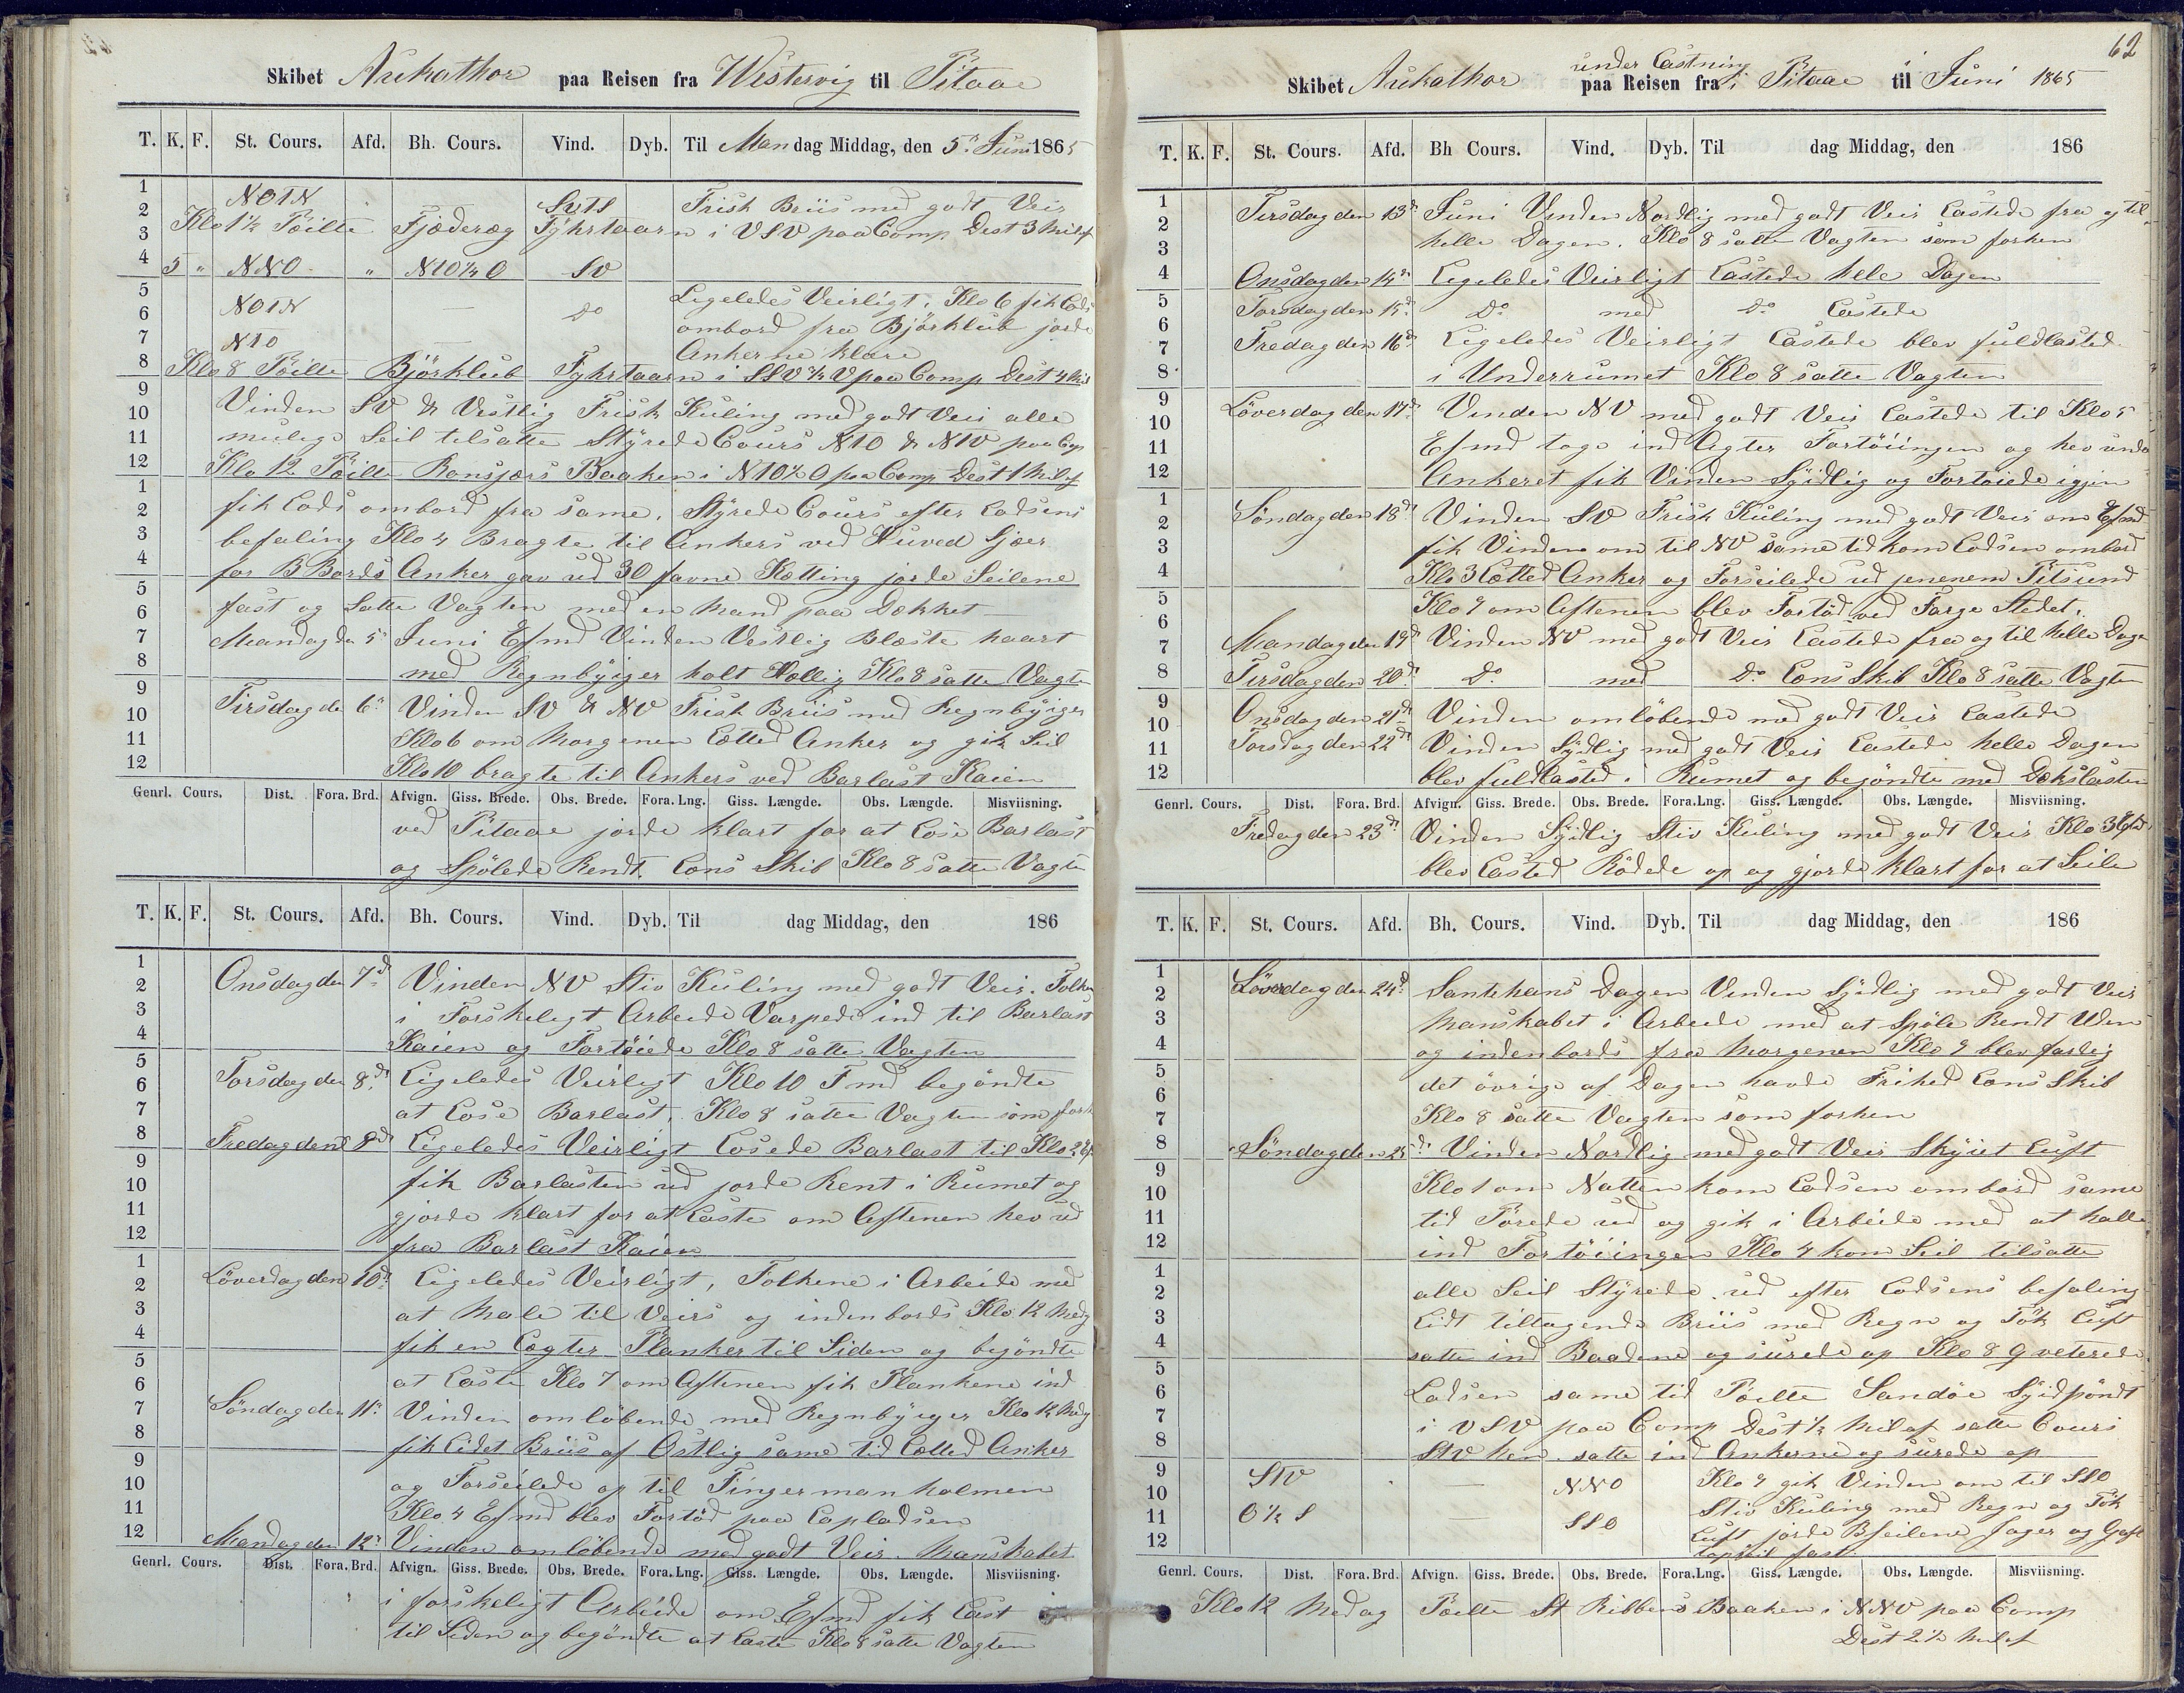 Skibet Arekathor paa Reisen fra Westervig til Pitaae
T. K. F. St. Cours. Afd. Bh. Cours. Vind. Dyb. Til Mandag Middag, den 5te Juni 1865
1
2 NO1N Sv1S Frisk Briis med godt Veir
3 Klo 1½ Pöilte Fjæderæg Fÿhrtaarn i VSV paa Comp Dest 3 Mil af
4 5 " NNO " N1O½O SV
5 Ligeledes Veirligt. Klo 6 fik Lods
6 NO1N — Do ombord fra Björklub jorde
7 N1O — Ankerne klare
8 Klo 8 Pöilte Björklub Fyhrtaarn i SSV½V paa Comp Dest 4 Mil
9 Vinden SV & Vestlig Frisk Kuling med godt Veir alle
10 mulige Seil tilsatte Styrede Cours N1O & N1V paa Comp
11
12 Klo 12 Pöilte Ronsjærs Baaken i N1O½O paa Comp Dest 1 Mil af
1 fik Lods ombord fra same. Styrede Cours efter Lodsens
2
3 befaling Klo 4 Bragte til Ankers ved Huved Sjær
4 for B Bords Anker gav ud 30 favne Kætting jorde Seilene
5 fast og Satte Vagten med en Mand paa Dækket
6
7 Mandag den 5te Juni Efmd Vinden Vestlig Blæste haart
8 med Regnbÿiger holt Hællig Klo 8 satte Vagten
9 Tirsdag de 6te Vinden SV & NV Frisk Briis med Regnbÿiger
10 Klo 6 om Morgenen Lætted Anker og gik Seil
11
12 Klo 10 bragte til Ankers ved Barlast Kaien
Genrl. Cours. Dist. Fora. Brd. Afvign. Giss. Brede. Obs. Brede. Fora. Lng. Giss. Længde. Obs. Længde. Misviisning.
ved Pitaae jorde klart for at Lose Barlast
og Spölede Rendt. Lens Skib Klo 8 satte Vagten
T. K. F. St. Cours. Afd. Bh. Cours. Vind. Dyb. Til dag Middag, den 186
1 Onsdag den 7de Vinden NV Stiv Kuling med godt Veir. Folkene
2
3 i Forskeligt Arbeide Varpede ind til Barlast
4 Kaien og Fortöiede Klo 8 satte Vagten
5 Torsdag den 8de Ligeledes Veirligt Klo 10 Fmd begöndte
6
7 at Lose Barlast. Klo 8 satte Vagten som forh
8 Fredag den 9de Ligeledes Veirligt Losede Barlast til Klo 2 Ef
9 fik Barlasten ud jorde Rent i Rumet og
10
11 gjorde klart for at Laste om Aftenen hev ud
12 fra Barlast Kaien
1 Löverdag den 10de Ligeledes Veirligt, Folkene i Arbeide med
2
3 at Male til Veirs og indenbords Klo 12 Medg
4 fik en Lægter Planker til Siden og begöndte
5 at Laste Klo 7 om Aftenen fik Plankene ind
6
7 Söndag den 11te Vinden omlöbende med Regnbÿiger Klo 12 Midg
8 fik Lidet Briis af Östlig same tid Lætted Anker
9 og Forseilede op til Fingermanholmen
10
11 Klo 4 Efmd blev Fortöd paa Lapladsen
12 Mandag den 12te Vinden omlöbende med godt Veir. Manskabet
Genrl. Cours. Dist. Fora. Brd. Afvign. Giss. Brede. Obs. Brede. Fora. Lng. Giss. Længde. Obs. Længde. Misviisning.
i forskeligt Arbeide om Efmd fik Last
til Siden og begöndte at Laste Klo 8 satte Vagten
62
under Lastning
Skibet Arekathor paa Reisen fra i Pitaae til Juni 1865
T. K. F. St. Cours. Afd. Bh Cours. Vind. Dyb. Til dag Middag, den 186
1 Tirsdag den 13de Juni Vinden Nordlig med godt Veir Lastede fra og til
2
3 helle Dagen. Klo 8 satte Vagten som forhen
4 Onsdag den 14de Ligeledes Veirligt Lastede hele Dagen
5 Torsdag den 15de Do med Do Lastede
6
7 Fredag den 16de Ligeledes Veirligt Lastede blev fuldlasted
8 i Underrumet Klo 8 satte Vagten
9 Löverdag den 17de Vinden NV med godt Veir Lastede til Klo 5
10
11 Efmd toge ind Agter Fortöiingen og hev under
12 Ankeret fik Vinden Sÿdlig og Fortöiede igjen
1 Söndag den 18de Vinden SV Frisk Kuling med godt Veir om Efmd
2
3 fik Vinden om til NV same tid kom Lodsen ombord
4 Klo 3 Lætted Anker og Forseilede ud jenenem Pitsund
5 Klo 9 om Aftenen blev Fortöd ved Farge Stedet.
6
7 Mandag den 19de Vinden NV med godt Veir Lastede fra og til helle Dage
8 Tirsdag den 20de Do med Do Lens Skib Klo 8 satte Vagten
9 Onsdag den 21de Vinden omlöbende med godt Veir Lastede
10
11 Torsdag den 22de Vinden Sÿdlig med godt Veir Lastede helle Dagen
12 blev fuldlasted i Rumet og begöndte med Dækslasten
Genrl. Cours. Dist. Fora. Brd. Afvign. Giss. Brede. Obs. Brede. Fora. Lng. Giss. Længde. Obs. Længde. Misviisning.
Fredag den 23de Vinden Sÿdlig Stiv Kuling med godt Veir Klo 3 Efmd
blev Lasted Rödede op og gjorde klart for at Seile
T. K. F. St. Cours. Afd. Bh. Cours. Vind. Dyb. Til dag Middag, den 186
1 Löverdag den 24de Santehans Dagen Vinden Sÿdlig med godt Veir
2
3 Manskabet i Arbeide med at Spöle Rendt Uden
4 og indenbords fra Morgenen Klo 9 blev færdig
5 det övrige af Dagen havde Frihed Lens Skib
6
7 Klo 8 satte Vagten som forhen
8 Söndag den 25de Vinden Nordlig med godt Veir Skÿiet Luft
9 Klo 1 om Natten kom Lodsen ombord same
10
11 tid Törede ud og gik i Arbeide med at halle
12 ind Fortöiingen Klo 4 kom Seil tilsatte
1 alle Seil Styrede ud efter Lodsens befaling
2
3 Lidt tiltagende Briis med Regn og Tök Luft
4 satte ind Baadene og surede op Klo 8 Qveterede
5 Lodsen same tid Pöilte Sandöe Sÿdpöndt
6
7 i VSV paa Comp Dest ½ Mil af satte Cours
8 StV hen satte ind Ankerne og surede op
9 StV — NNO Klo 9 gik Vinden om til SSO
10 Stiv Kuling med Regn og Tök
11 O½S — SSO Luft jorde Bseilene Jager og Gaf
12 topseil fast.
Genrl. Cours. Dist. Fora. Brd. Afvign. Giss. Brede. Obs. Brede. Fora. Lng. Giss. Længde. Obs. Længde. Misviisning.
Klo 12 Medag Pöilte St Ribbens Baaken i NNV paa Comp
Dest 2½ Mil af